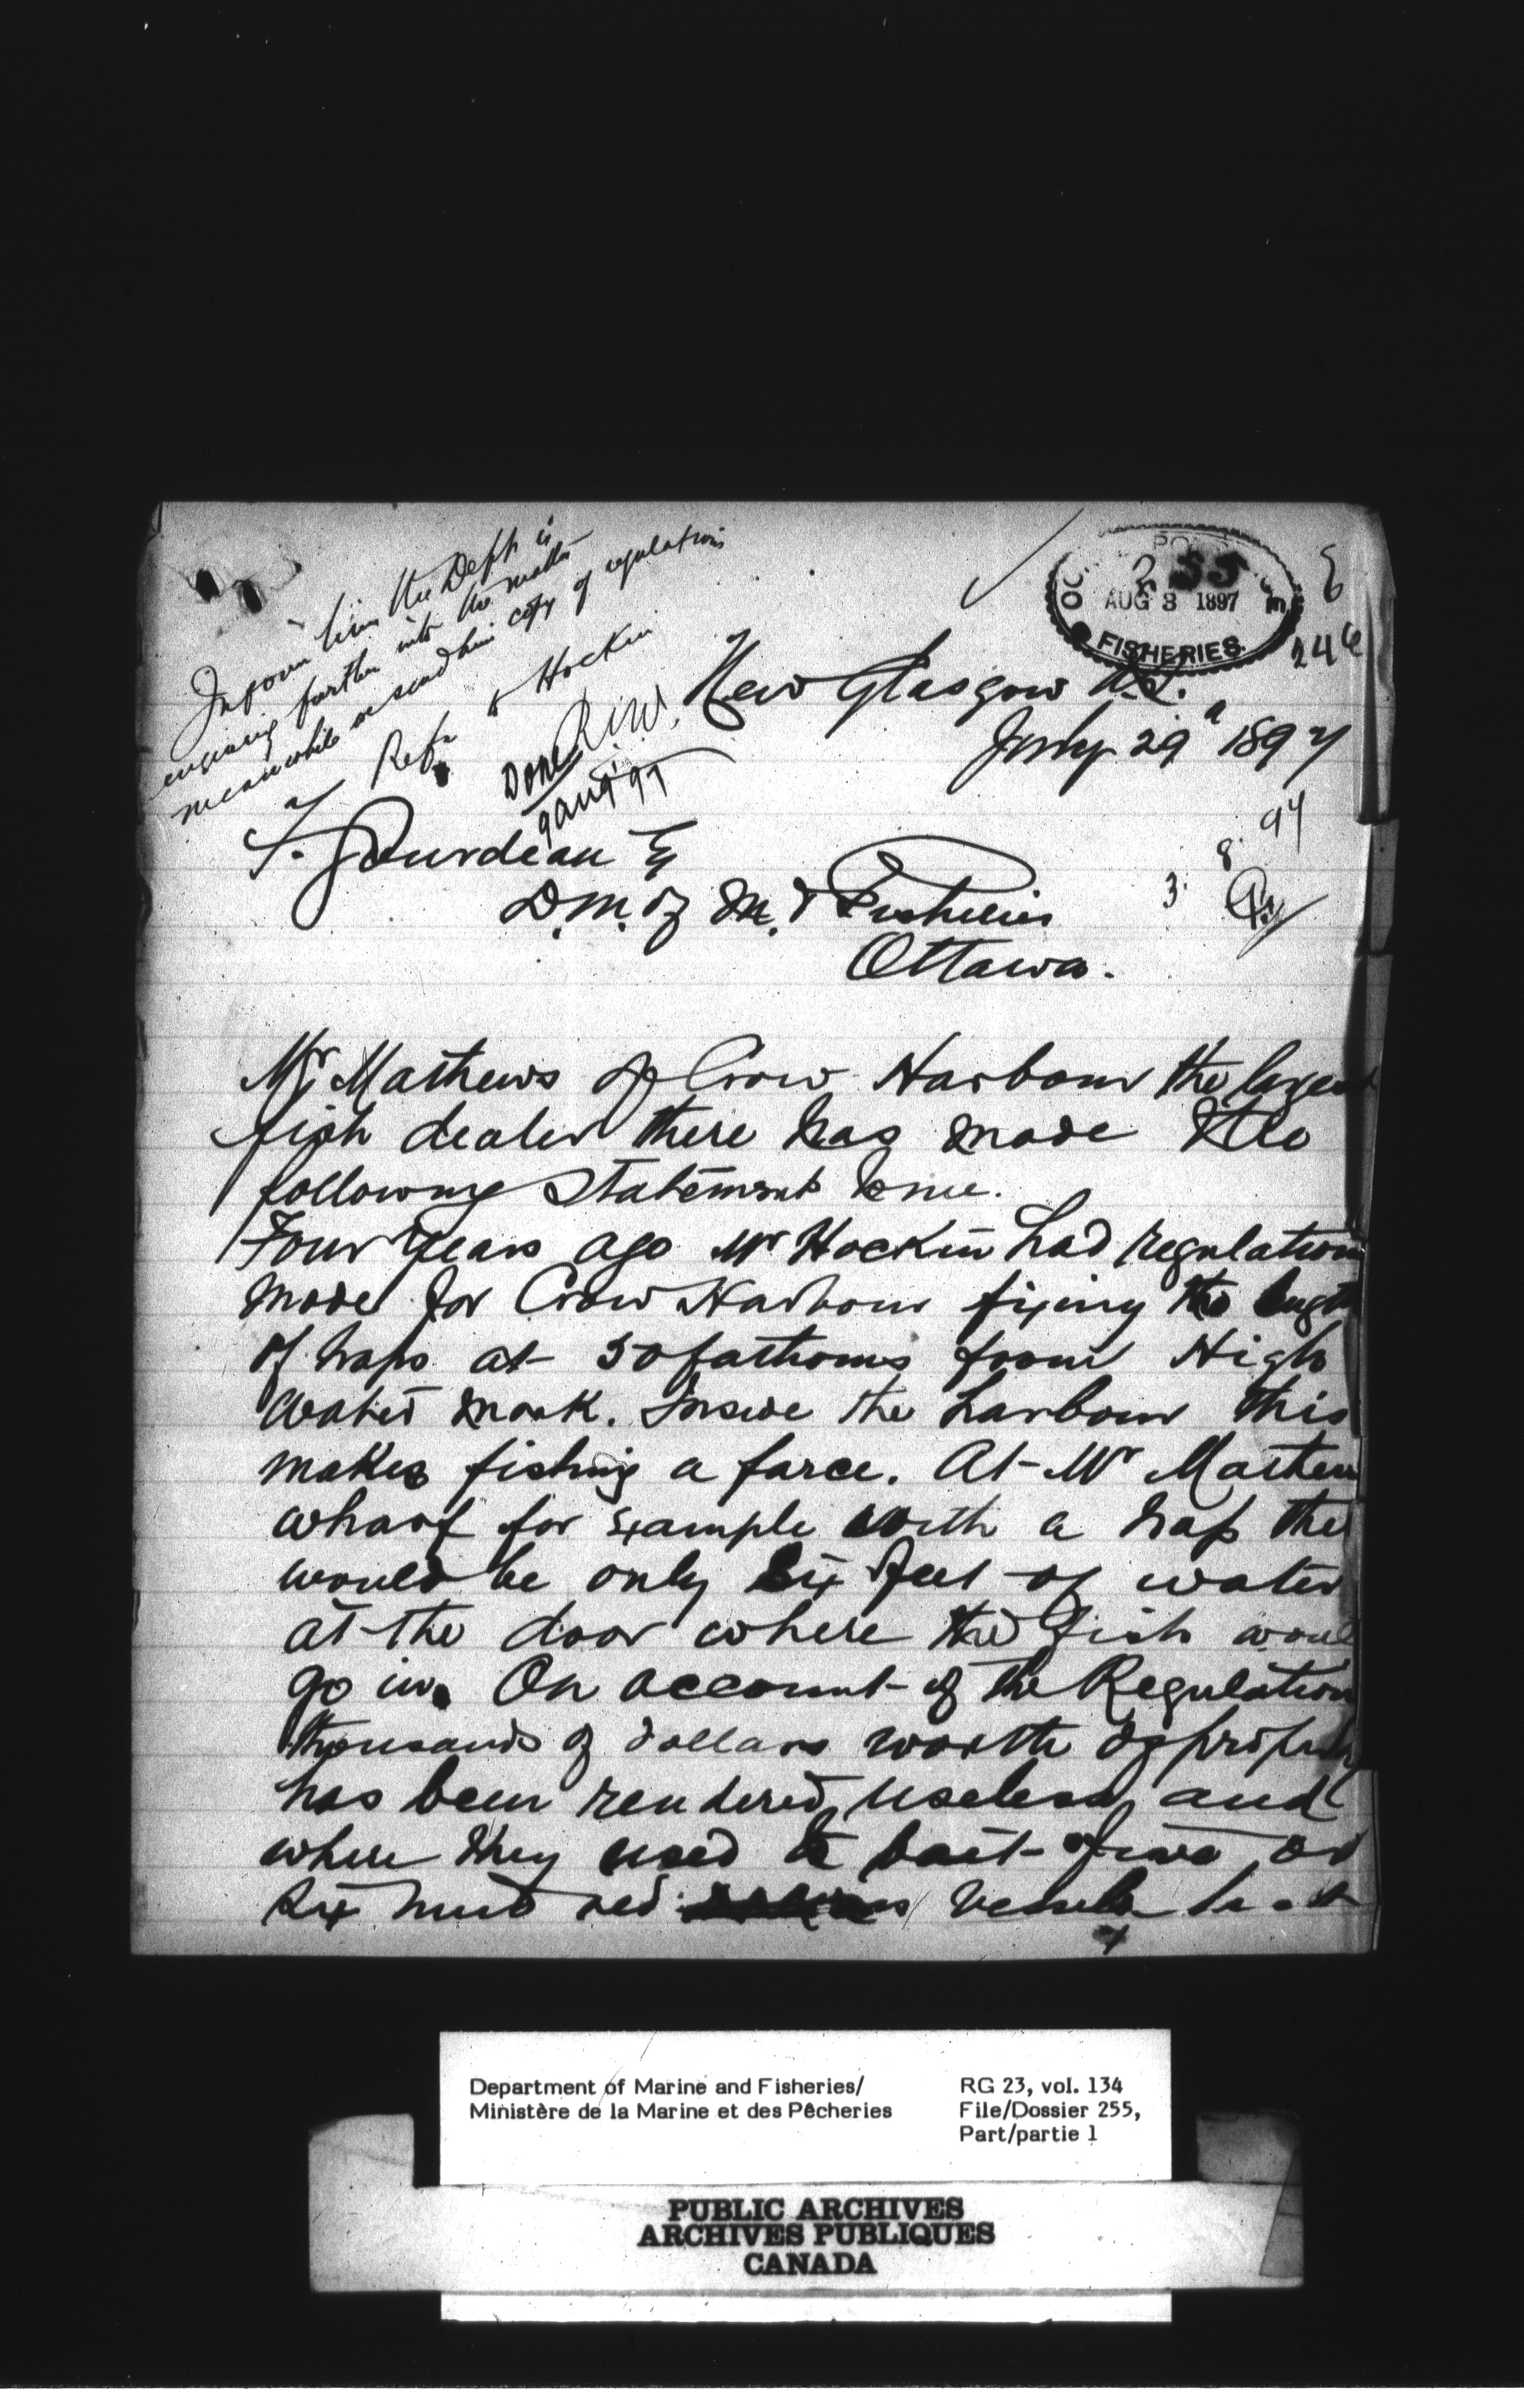 Inform him the Dept is
enquiring further into the matter
meanwhile send him copy of regulations
Refr to Hockin
Done
9 Aug 97
255
AUG 3 1897
FISHERIES
246
New Glasgow N.S.
July 29th 1897
F. Gourdeau Esq
D.M. of M. & Fisheries
Ottawa.
3. 8. 97
Mr Mathews of Crow Harbour the largest
fish dealer there has made the
following statement to me.
Four years ago Mr Hockin had regulations
made for Crow Harbour fixing the length
of traps at 50 fathoms from High
water mark. Inside the harbour this
makes fishing a farce. At Mr Mathews
wharf for example with a trap there
would be only six feet of water
at the door where the fish would
go in. On account of the Regulation
thousands of dollars worth of property
has been rendered useless, and
where they used to bait five or
six hundred vessels
Department of Marine and Fisheries/
Ministère de la Marine et des Pêcheries
RG 23, vol. 134
File/Dossier 255,
Part/partie 1
PUBLIC ARCHIVES
ARCHIVES PUBLIQUES
CANADA